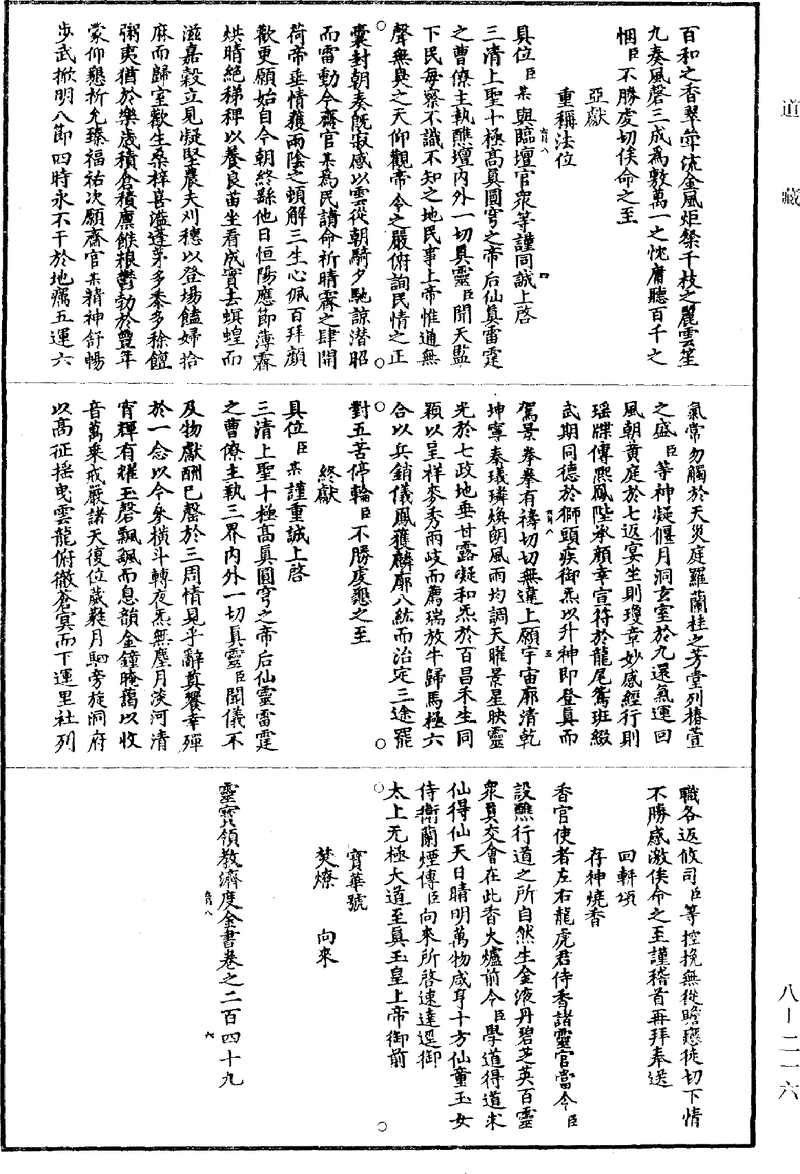 道藏
百和之香翠嶂流金風炬粲千枝之麗雲笙
九奏風磬三成為敷萬一之忱庸聽百千之
悃臣不勝虔切俟命之至
亞獻
重稱法位
具位臣某與臨壇官眾等謹同誠上啓
三清上聖十極高真圓穹之帝后仙真雷霆
之曹僚主執醮壇內外一切真靈臣聞天監
下民每察不識不知之地民事上帝惟通無
聲無臭之天仰觀帝令之嚴俯詢民情之正
囊封朝奏既寂感以雲從朝騎夕馳諒潛昭
而雷動今齋官某為民請命祈晴霽之肆開
荷帝垂情獲雨陰之頓解三生心佩百拜顏
歡更願始自今朝終繇他日恒陽應節薄霽
烘晴絕稊稗以養良苗坐看成實去螟蝗而
滋嘉穀立見凝堅農夫刈穗以登場饁婦拾
麻而歸室歡生桑梓喜溢蓬茅多黍多稌饘
粥夷猶於樂歲積倉積廩餱粮鬱勃於豐年
蒙仰懇祈允臻福祐次願齋官某精神舒暢
步武掀明八節四時永不干於地癘五運六
氣常勿觸於天災庭羅蘭桂之芳堂列椿萱
之盛臣等神凝偃月洞玄室於九還氣運回
風朝黃庭於七返宴坐則瓊章妙感經行則
瑶牒傳熙鳳陛承顏幸宣符於龍尾鴛班綴
武期同德於獅頭疾御炁以升神即登真而
駕景拳拳有禱切切無違上願宇宙廓清乾
坤寧泰璣璘煥朗風雨均調天曜景星映靈
光於七政地垂甘露凝和炁於百昌禾生同
穎以呈祥麥秀兩岐而薦瑞放牛歸馬極六
合以兵銷儀鳳獲麟廓八紘而治定三途罷
對五苦停輪臣不勝虔懇之至
終獻
具位臣某謹重誠上啓
三清上聖十極高真圓穹之帝后仙靈雷霆
之曹僚主執三界內外一切真靈臣聞儀不
及物獻酬已罄於三周情見乎辭奠饗幸殫
於一念以今參橫斗轉夜炁無塵月淡河清
宵輝有耀玉磬飄飄而息韻金鐘晻藹以收
音萬乘戒嚴諸天復位葳蕤月駟旁旋洞府
以高征摇曳雲龍俯徹蒼冥而下運里社列
職各返攸司臣等控挽無從瞻戀徒切下情
不勝感激俟命之至謹稽首再拜奉送
回軿頌
存神燒香
香官使者左右龍虎君侍香諸靈官當今臣
設醮行道之所自然生金液丹碧芝英百靈
衆真交會在此香火爐前令臣學道得道求
仙得仙天日晴明萬物咸亨十方仙童玉女
侍衛蘭煙傳臣向來所啓速達逕御
太上无極大道至真玉皇上帝御前
寶華號
焚燎　向來
靈寶領教濟度金書卷之二百四十九
八—二一六